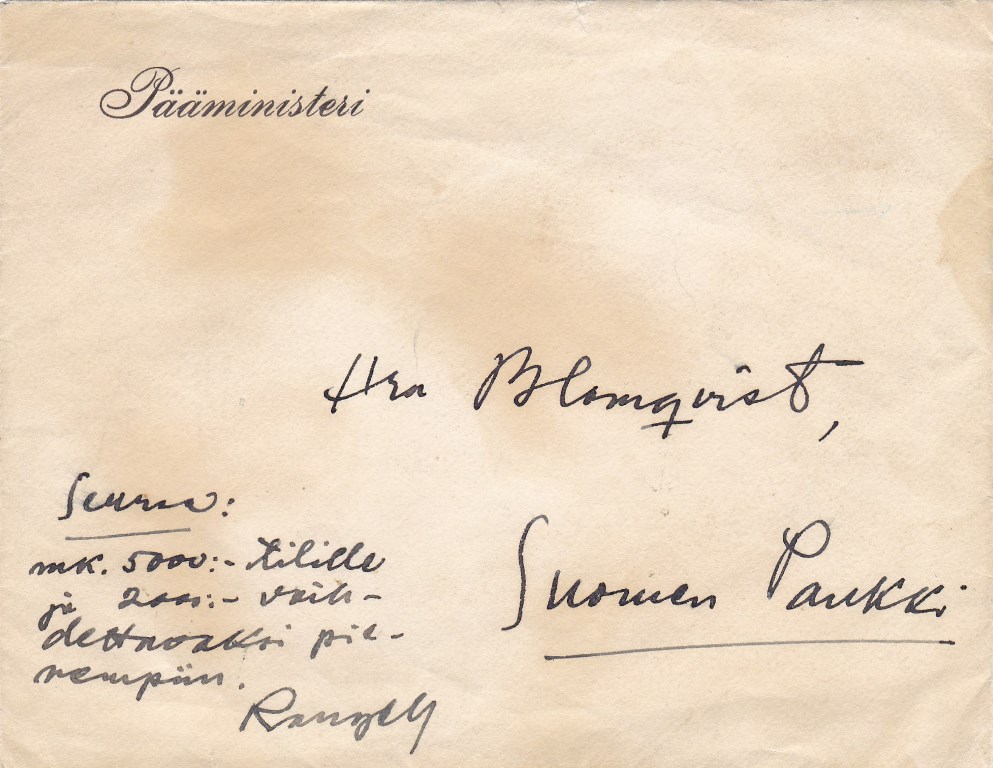 Pääministeri
Hra Blomqvist,
Suomen Pankki
Seuraa:
mk. 5000:- tilille
ja 2000:- vaih-
dettavaksi pie-
nempiin.
Rangell